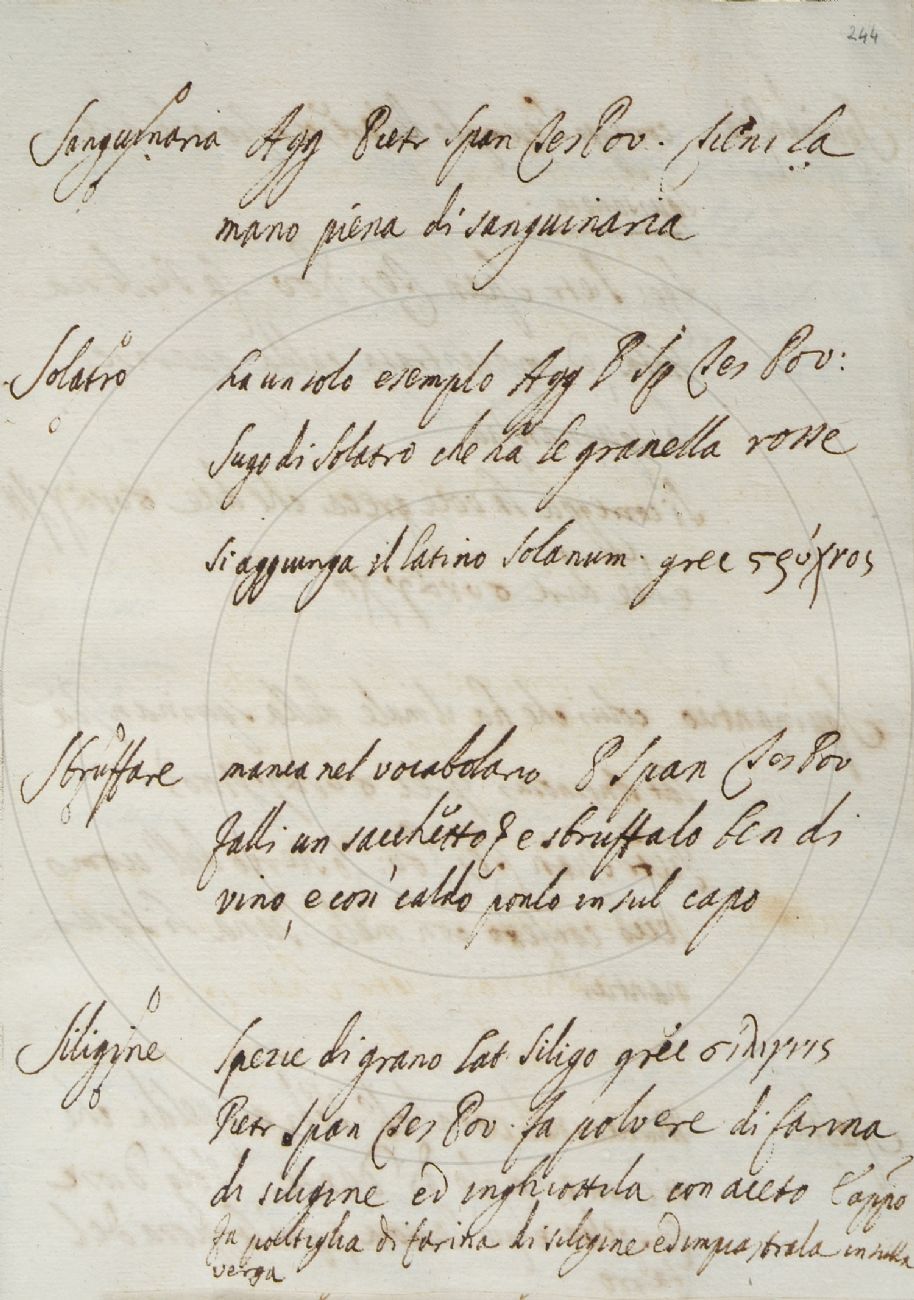 244
Sanguinaria Agg Pietr Span Tes Pov. tieni la
mano piena di sanguinaria
Solatro ha un solo esemplo Agg P Sp Tes Pov:
sugo di solatro che ha le granella rosse
si aggiunga il latino solanum. grec στρύχνος
Sbruffare manca nel vocabolario P Span Tes Pov
falli un sacchetto e sbruffalo ben di
vino, e così caldo ponlo in sul capo
Siligine spezie di grano lat siligo grec σίλιγνις
Pietr Span Tes Pov. fa polvere di farina
di siligine ed inghiottila con aceto
fa poltiglia di farina di siligine ed impiastrala in sulla
verga